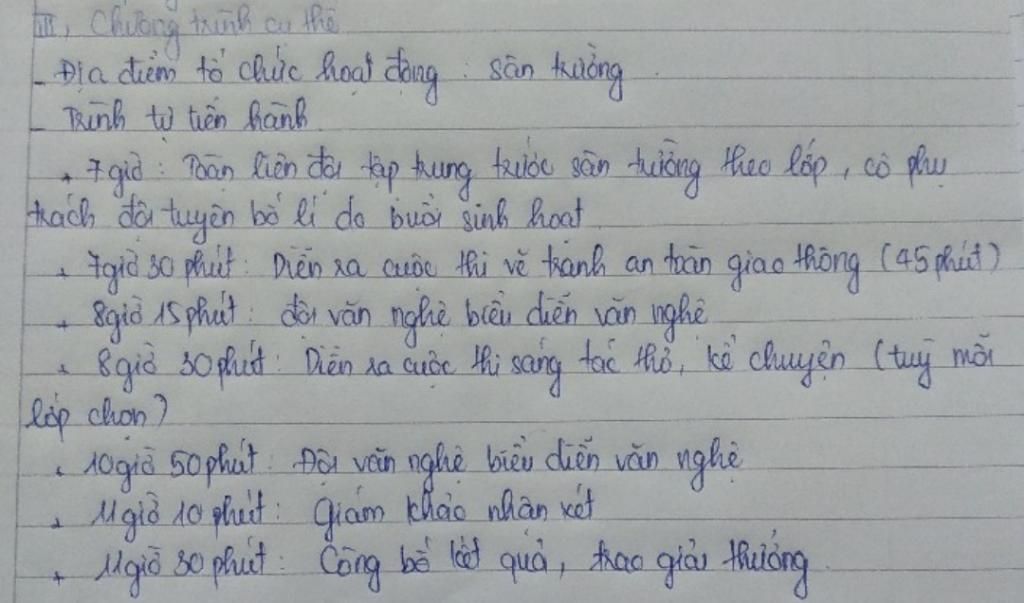 III, Chương trình cụ thể
- Địa điểm tổ chức hoạt động : sân trường.
- Trình tự tiến hành
+ 7 giờ : Toàn liên đội tập trung trước sân trường theo lớp, cô phụ
trách đội tuyên bố lí do buổi sinh hoạt
+ 7 giờ 30 phút : Diễn ra cuộc thi vẽ tranh an toàn giao thông (45 phút)
+ 8 giờ 15 phút : đội văn nghệ biểu diễn văn nghệ
+ 8 giờ 30 phút : Diễn ra cuộc thi sáng tác thơ, kể chuyện (tuỳ mỗi
lớp chọn)
+ 10 giờ 50 phút : Đội văn nghệ biểu diễn văn nghệ
+ 11 giờ 10 phút : Giám khảo nhận xét
+ 11 giờ 30 phút : Công bố kết quả, trao giải thưởng.